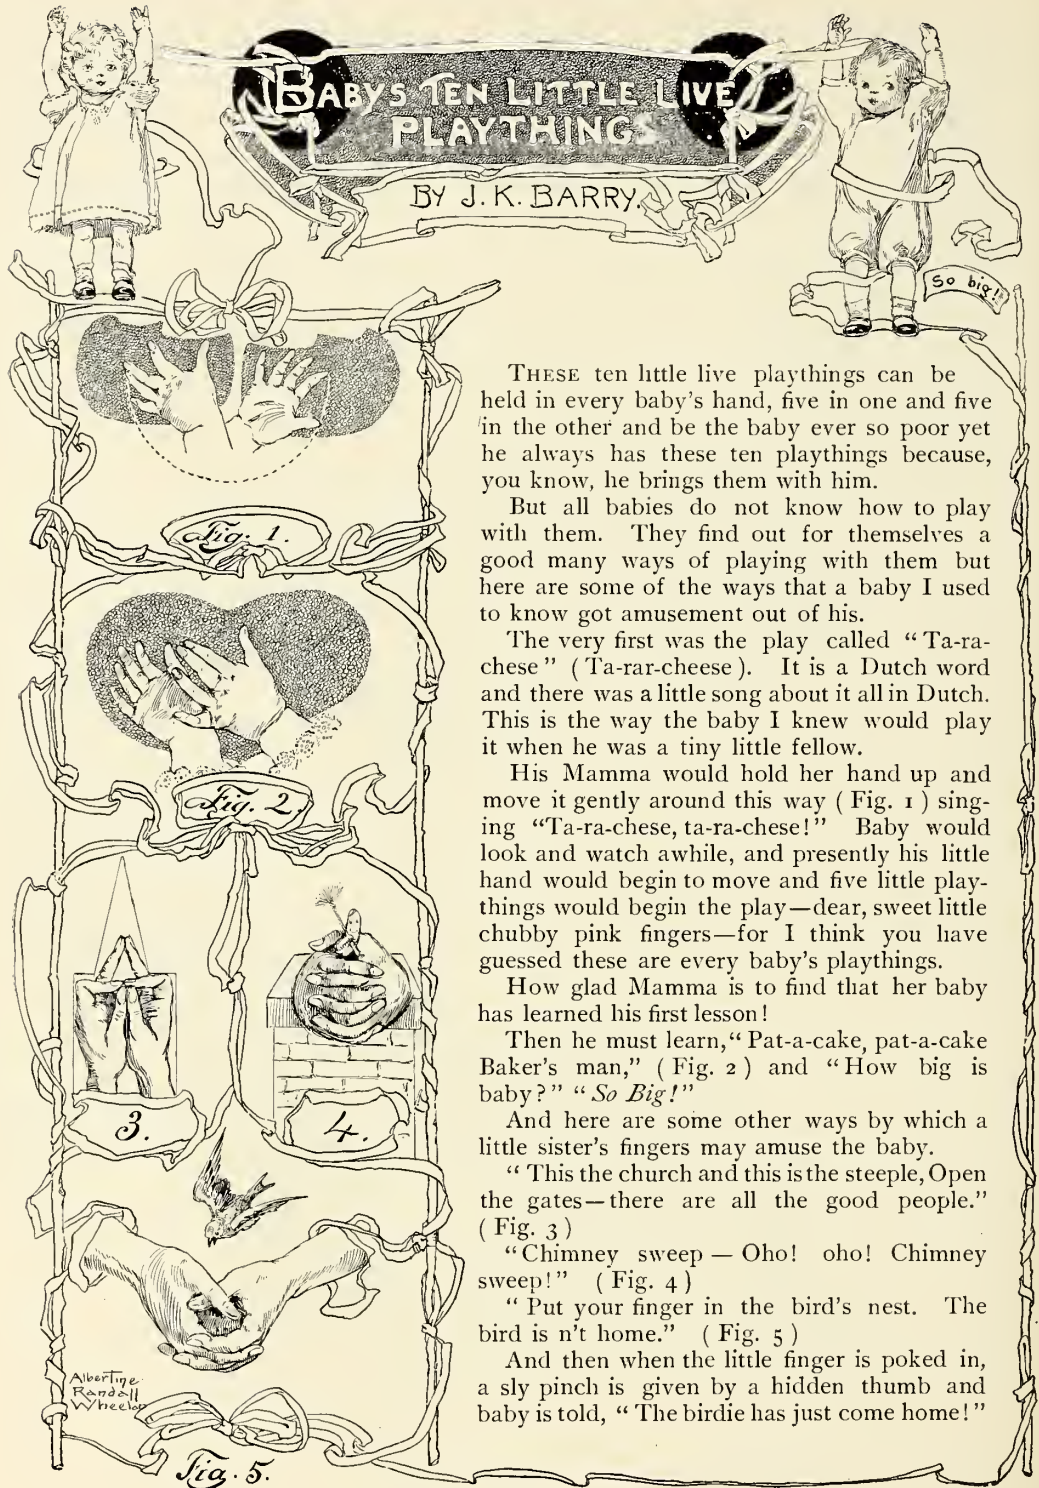 BABY'S TEN LITTLE LIVE
PLAYTHINGS
BY J. K. BARRY.
So big!
THESE ten little live playthings can be
held in every baby's hand, five in one and five
in the other and be the baby ever so poor yet
he always has these ten playthings because,
you know, he brings them with him.
But all babies do not know how to play
with them. They find out for themselves a
good many ways of playing with them but
here are some of the ways that a baby I used
to know got amusement out of his.
The very first was the play called "Ta-ra-
chese" (Ta-rar-cheese). It is a Dutch word
and there was a little song about it all in Dutch.
This is the way the baby I knew would play
it when he was a tiny little fellow.
His Mamma would hold her hand up and
move it gently around this way (Fig. 1) sing-
ing "Ta-ra-chese, ta-ra-chese!" Baby would
look and watch awhile, and presently his little
hand would begin to move and five little play-
things would begin the play—dear, sweet little
chubby pink fingers—for I think you have
guessed these are every baby's playthings.
How glad Mamma is to find that her baby
has learned his first lesson!
Then he must learn, "Pat-a-cake, pat-a-cake
Baker's man," (Fig. 2) and "How big is
baby?" "So Big!"
And here are some other ways by which a
little sister's fingers may amuse the baby.
"This the church and this is the steeple, Open
the gates—there are all the good people."
(Fig. 3)
"Chimney sweep — Oho! oho! Chimney
sweep!" (Fig. 4)
"Put your finger in the bird's nest. The
bird is n't home." (Fig. 5)
And then when the little finger is poked in,
a sly pinch is given by a hidden thumb and
baby is told, "The birdie has just come home!"
Fig. 1.
Fig. 2.
3.
4.
Albertine
Randall
Wheelan
Fig. 5.